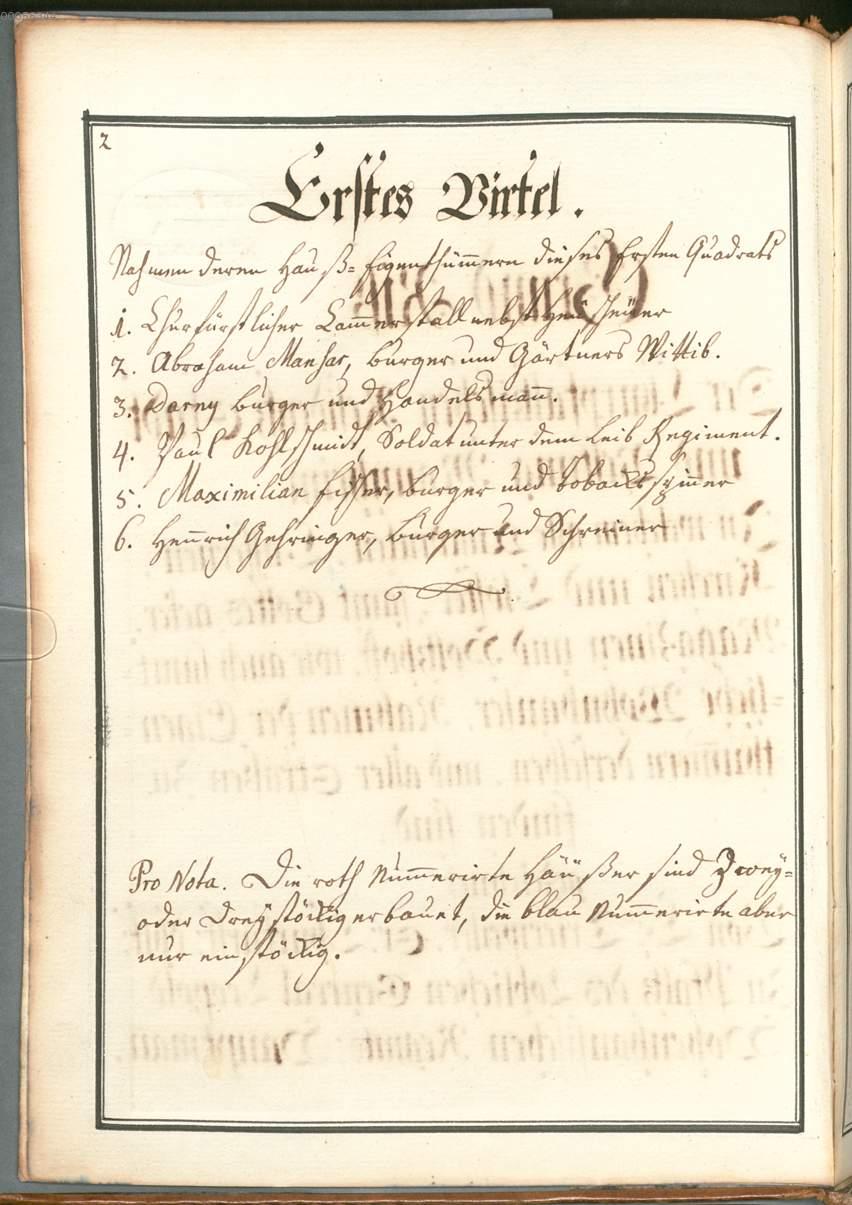 2
Erstes Virtel.
Nahmen deren Hauß=Eigenthümmern dieses Ersten Quadrats
1. Churfürstlicher Cammerstall nebst Heü Scheüer
2. Abraham Mansar, burger und Gärtners Wittib.
3. Darny burger und Handelsmann.
4. Paul Kohlschmidt, Soldat unter dem Leib Regiment.
5. Maximilian fisher, burger und tobacksspinner
6. Henrich Gehringer, burger und Schreiner
Pro Nota. Die roth Nummerirte Haüßer sind Zwey=
oder Dreystöckig erbauet, die blau Nummerirte aber
nur einstöckig.